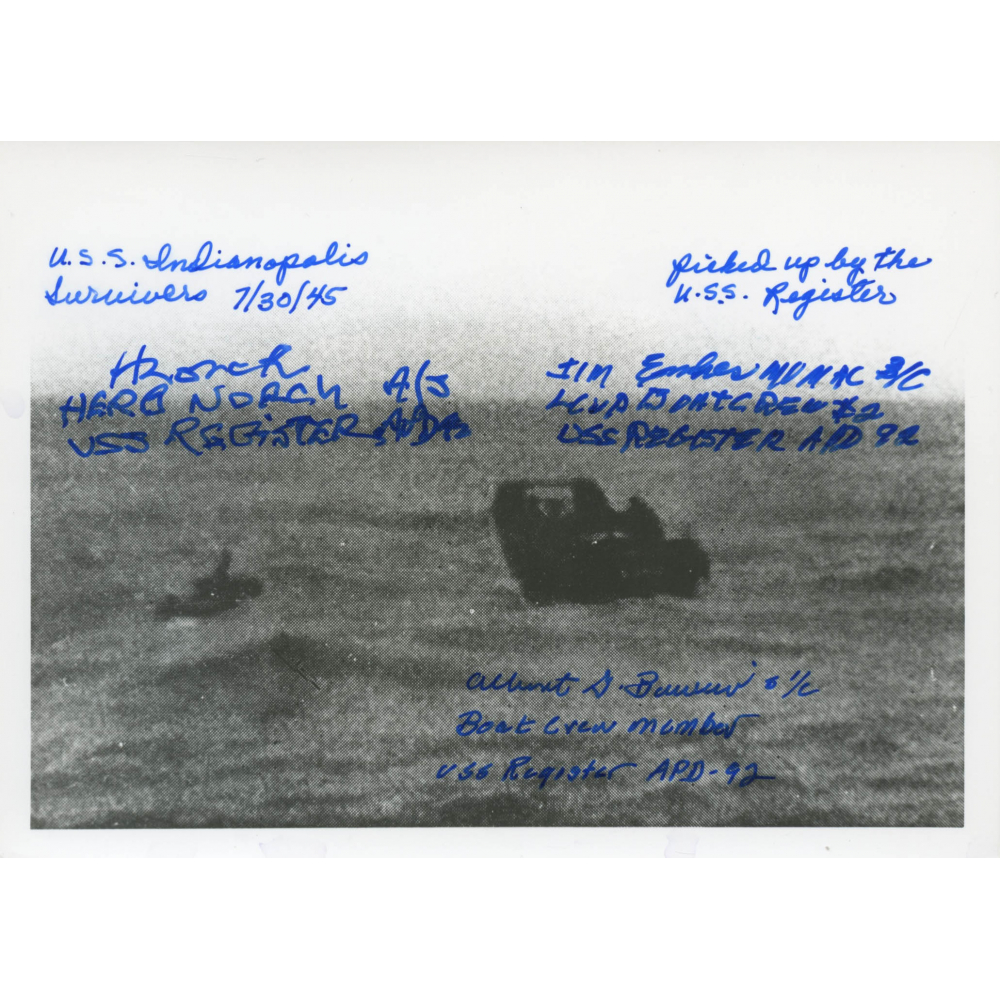 U.S.S. Indianapolis
Survivers 7/30/45
picked up by the
U.S.S. Register
HERB NORCH A/S
USS REGISTER
JIM MOMM 3/C
LCVP BOAT CREW #2
USS REGISTER APD 92
Albert S. 1/c
Boat Crew Member
USS Register APD-92